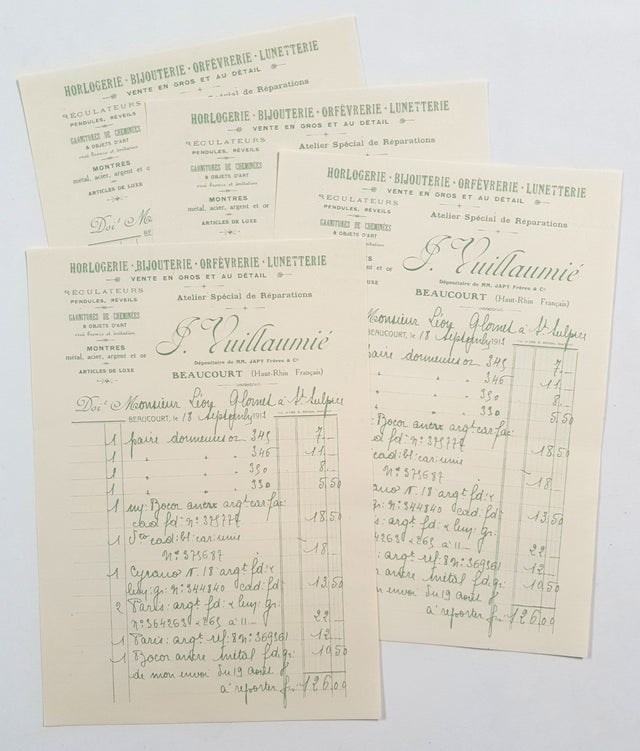 HORLOGERIE · BIJOUTERIE · ORFÈVRERIE · LUNETTERIE
VENTE EN GROS ET AU DÉTAIL
Spécial de Réparations
RÉGULATEURS
PENDULES, RÉVEILS
GARNITURES DE CHEMINÉES
& OBJETS D'ART
MONTRES
métal, acier, argent et o
ARTICLES DE LUXE
Doit
HORLOGERIE · BIJOUTERIE · ORFÈVRERIE · LUNETTERIE
VENTE EN GROS ET AU DÉTAIL
RÉGULATEURS
Atelier Spécial de Réparations
PENDULES, RÉVEILS
GARNITURES DE CHEMINÉES
& OBJETS D'ART
MONTRES
métal, acier, argent et or
ARTICLES DE LUXE
HORLOGERIE · BIJOUTERIE · ORFÈVRERIE · LUNETTERIE
VENTE EN GROS ET AU DÉTAIL
RÉGULATEURS
PENDULES, RÉVEILS
Atelier Spécial de Réparations
GARNITURES DE CHEMINÉES
& OBJETS D'ART
J. Vuillaumié
et or
Dépositaire de MM. JAPY Frères & Cie
BEAUCOURT (Haut-Rhin Français)
Monsieur Léon à St Sulpice
BEAUCOURT, le 18 191
paire dormeuses or 345 7
346 11
350 8
330 5,50
Bocor ancre argt
18,50
cad: bl:
N° 375687 18
18 argt fd:
n°: 344840 13,50
argt fd:
264263 & 265 à 11 22
argt 8 N° 369361 12
ancre métal 10,50
mon envoi du 19 août
à reporter fr. 126,00
HORLOGERIE · BIJOUTERIE · ORFÈVRERIE · LUNETTERIE
VENTE EN GROS ET AU DÉTAIL
RÉGULATEURS
PENDULES, RÉVEILS
Atelier Spécial de Réparations
GARNITURES DE CHEMINÉES
& OBJETS D'ART
vrai bronze et imitation
J. Vuillaumié
MONTRES
métal, acier, argent et or
Dépositaire de MM. JAPY Frères & Cie
ARTICLES DE LUXE
BEAUCOURT (Haut-Rhin Français)
Doit Monsieur Léon à St Sulpice
BEAUCOURT, le 18 191
1 paire dormeuses or 345 7
1 " " " 346 11
1 " " " 350 8
1 " " " 330 5,50
1 Bocor ancre argt
cad fd: 18,50
1 cad: bl:
N° 375687 18
1 Cyrano N. 18 argt fd: &
gr: n°: 344840 cad: fd: 13,50
2 Paris: argt fd: & gr:
N° 364263 & 265 à 11 22
1 Paris: argt 8 N° 369361 12
1 Bocor ancre métal fd: gr: 10,50
de mon envoi du 19 août
à reporter fr. 126,00